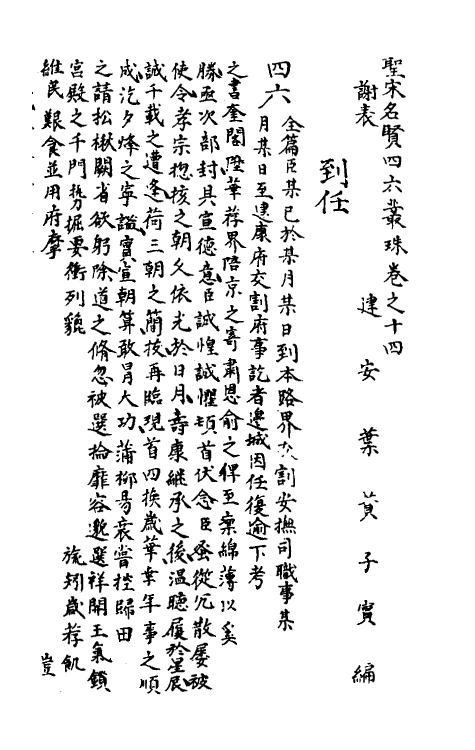 聖宋名賢四六叢珠卷之十四
建安葉蕡子實編
謝表
到任
四六
全篇臣某已於某月某日到本路界交割安撫司職事某
月某日至建康府交割府事訖者邊城因任復逾下考
之書奎閣陞華荐界陪京之寄肅恩俞之俾至稟綿薄以奚
勝亟次部封具宣德意臣誠惶誠懼頓首伏念臣蚤從冗散屡被
使令孝宗揔核之朝久依光於日月壽康継承之後温聴履於星辰
誠千載之遭逢荷三朝之簡拔再臨現首四換歲華幸年事之順
成汔夕烽之寧謐實宣朝算敢冐大功蒲柳昜衰嘗控歸田
之請松楸闕省欲躬除道之脩忽被選掄靡容邀選祥開王氣鎖
宮殿之千門勢掘要衝列貔 旒矧歲荐飢
維民艱食並用府摩 豈